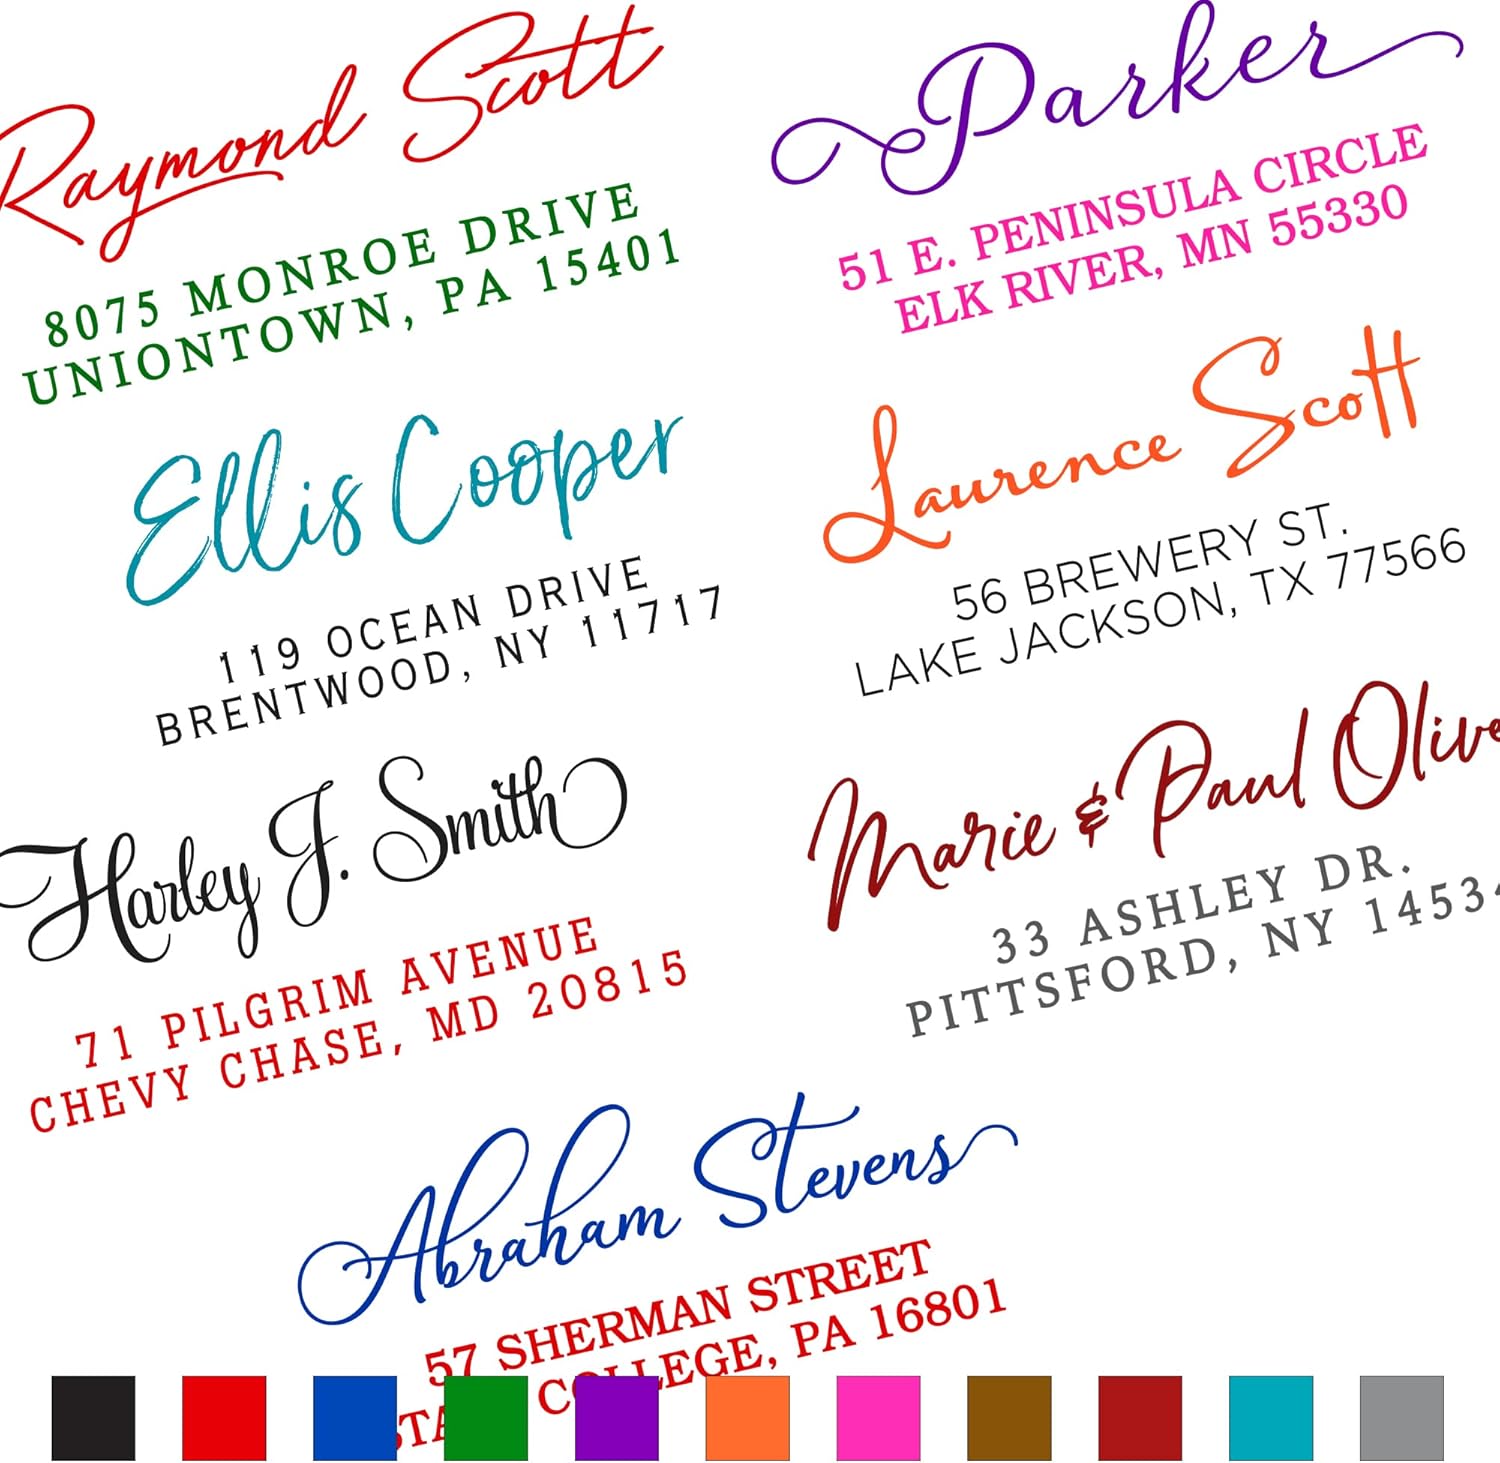 Raymond Scott
8075 MONROE DRIVE
UNIONTOWN, PA 15401
Parker
51 E. PENINSULA CIRCLE
ELK RIVER, MN 55330
Ellis Cooper
119 OCEAN DRIVE
BRENTWOOD, NY 11717
Laurence Scott
56 BREWERY ST.
LAKE JACKSON, TX 77566
Harley J. Smith
71 PILGRIM AVENUE
CHEVY CHASE, MD 20815
Marie & Paul Olive
33 ASHLEY DR.
PITTSFORD, NY 14534
Abraham Stevens
57 SHERMAN STREET
COLLEGE, PA 16801